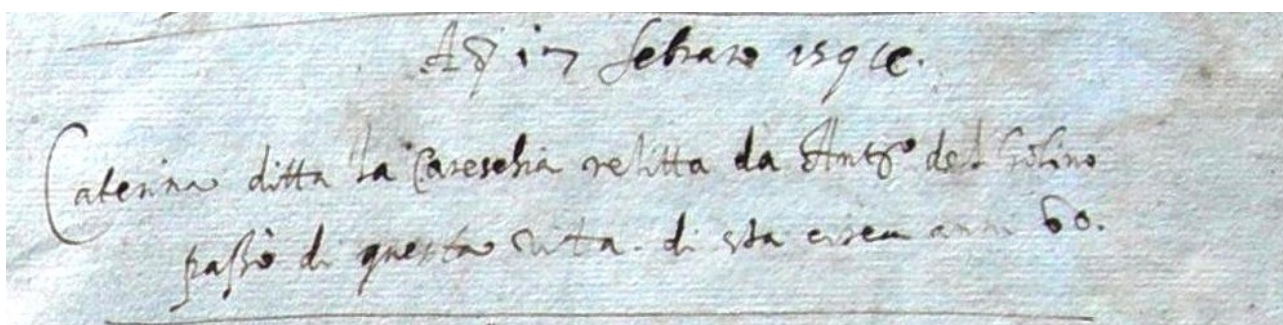 Adi 17 febraro 159
Caterina ditta la Careschia relitta da Antº del
passò di questa vita. di età circa anni 60.